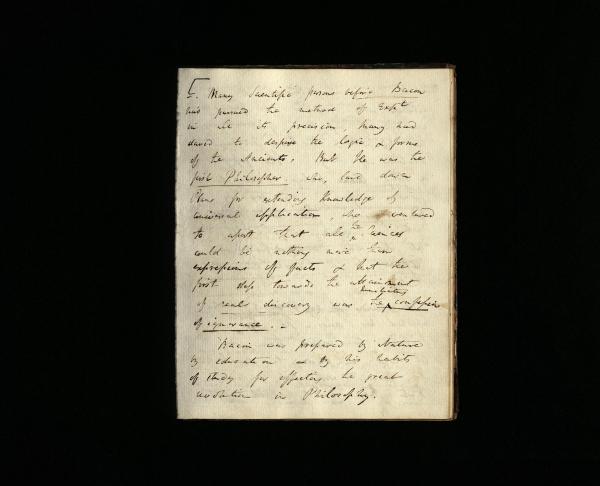 5. Many Scientific persons before Bacon
had pursued the method of Expt
in all its precision, Many had
dared to despise the logic & forms
of the Ancients. But He was the
first Philosopher who laid down
Plans for extending Knowledge of
universal application, who ventured
to assert that all the Sciences
could be nothing more than
expressions of facts & that the
first step towards the attainment
of real discovery was the humiliating confession
of ignorance. –
Bacon was prepared by Nature
by education & by his habits
of study for effecting the great
revolution in Philosophy.